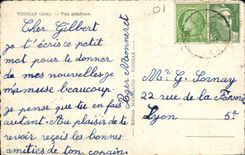 VONNAS (Ain). — Vue générale.
01
Cher Gilbert
je t'écris ce petit
mot pour te donner
de mes nouvelles je
m'amuse beaucoup.
Je pense que tu en fais
autant. Au plaisir de te
revoir reçois les bonnes
amitiés de ton copain
Roger Monneret
Mr G. Lornay
22 rue de la France
Lyon 5e